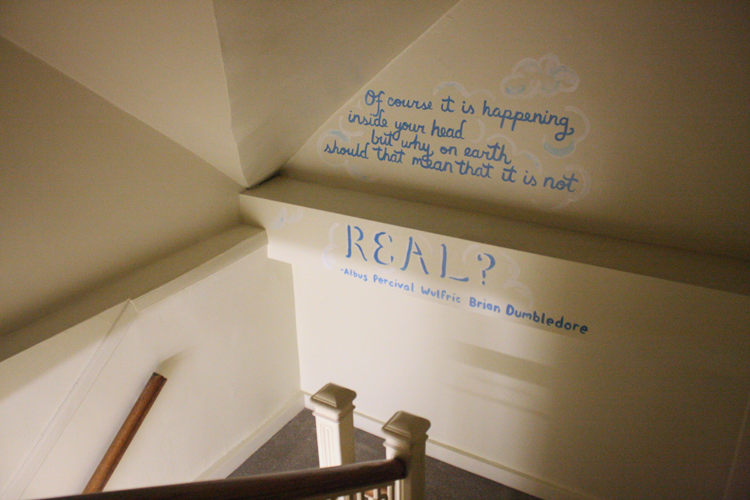 Of course it is happening,
inside your head
but why on earth
should that mean that it is not
REAL?
-Albus Percival Wulfric Brian Dumbledore